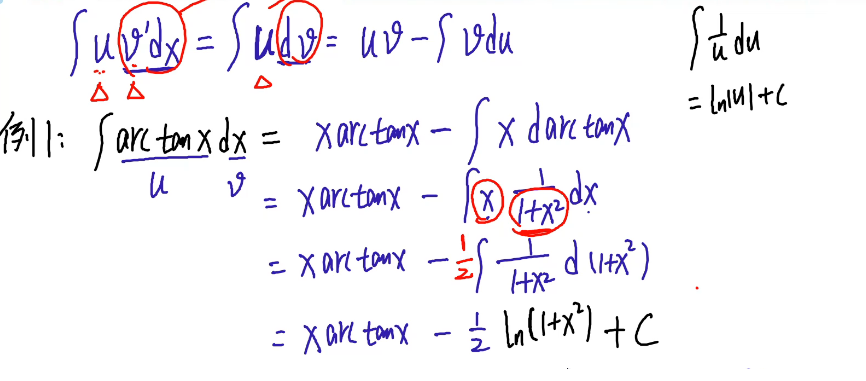 ∫u v'dx = ∫u dv = uv - ∫v du
∫ 1/u du
= ln|u|+C
例1: ∫arctanx dx = xarctanx - ∫x darctanx
u v
= xarctanx - ∫x 1/(1+x²) dx
= xarctanx - 1/2 ∫ 1/(1+x²) d(1+x²)
= xarctanx - 1/2 ln(1+x²) + C